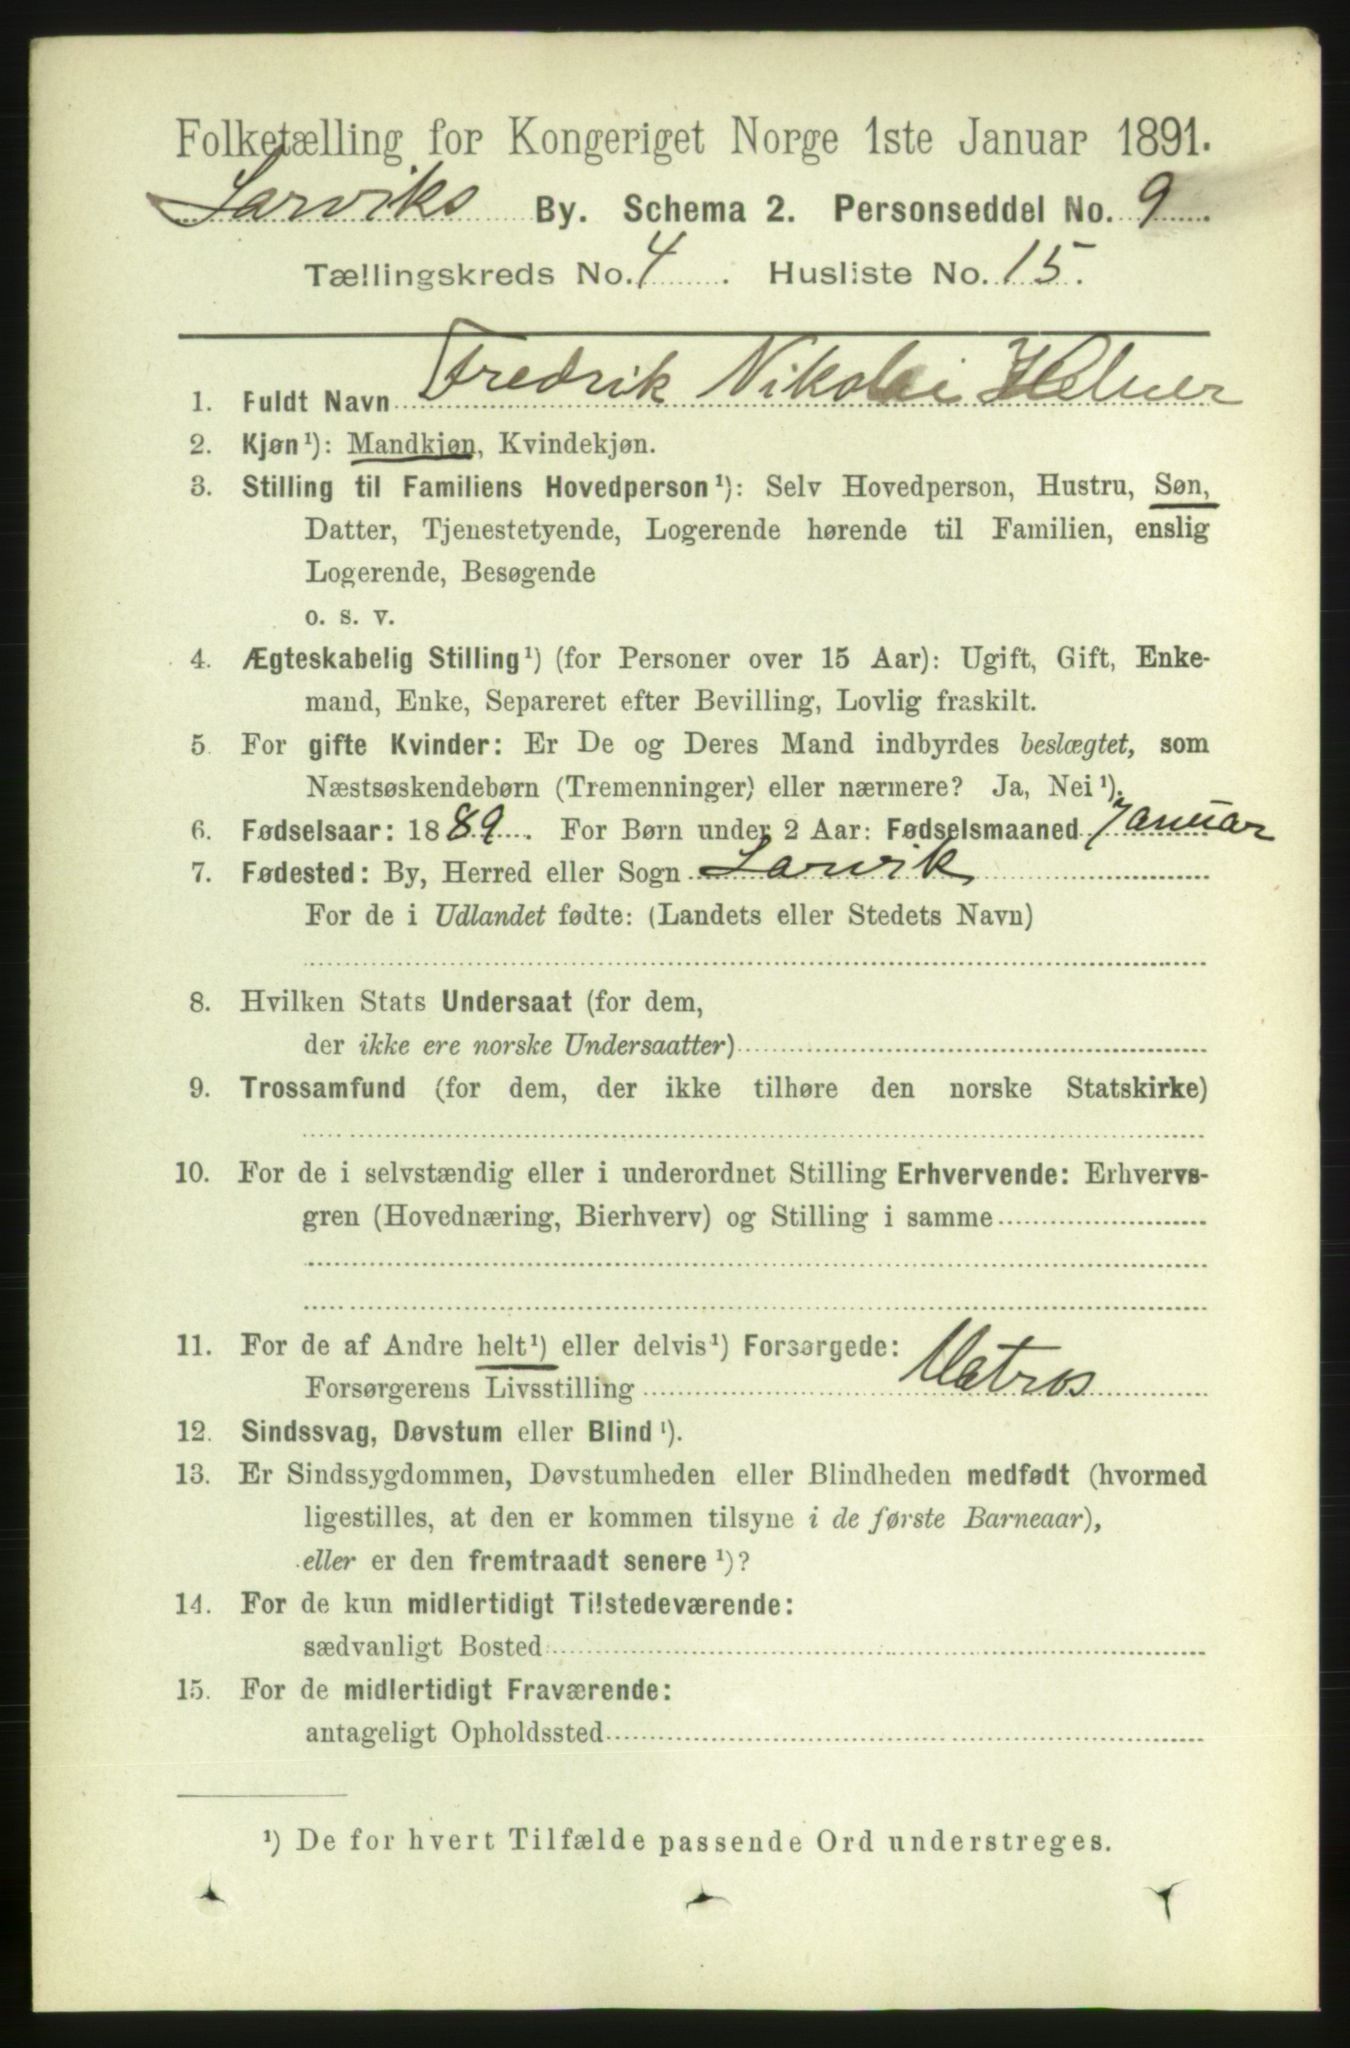 Folketælling for Kongeriget Norge 1ste Januar 1891.
Larviks By. Schema 2. Personseddel No. 9.
Tællingskreds No. 4. Husliste No. 15.
1. Fuldt Navn Fredrik Nikolai
2. Kjøn¹): Mandkjøn, Kvindekjøn.
3. Stilling til Familiens Hovedperson¹): Selv Hovedperson, Hustru, Søn,
Datter, Tjenestetyende, Logerende hørende til Familien, enslig
Logerende, Besøgende
o. s. v.
4. Ægteskabelig Stilling¹) (for Personer over 15 Aar): Ugift, Gift, Enke-
mand, Enke, Separeret efter Bevilling, Lovlig fraskilt.
5 For gifte Kvinder: Er De og Deres Mand indbyrdes beslægtet, som
Næstsøskendebørn (Tremenninger) eller nærmere? Ja, Nei¹).
6. Fødselsaar: 1889. For Børn under 2 Aar: Fødselsmaaned Januar
7. Fødested: By, Herred eller Sogn Larvik
For de i Udlandet fødte: (Landets eller Stedets Navn)
8. Hvilken Stats Undersaat (for dem,
der ikke ere norske Undersaatter)
9. Trossamfund (for dem, der ikke tilhøre den norske Statskirke)
10. For de i selvstændig eller i underordnet Stilling Erhvervende: Erhvervs-
gren (Hovednæring, Bierhverv) og Stilling i samme
11. For de af Andre helt¹) eller delvis¹) Forsørgede:
Forsørgerens Livsstilling Matros
12. Sindssvag, Døvstum eller Blind¹).
13. Er Sindssygdommen, Døvstumheden eller Blindheden medfødt (hvormed
ligestilles, at den er kommen tilsyne i de første Barneaar),
eller er den fremtraadt senere¹)?
14. For de kun midlertidigt Tilstedeværende:
sædvanligt Bosted
15. For de midlertidigt Fraværende:
antageligt Opholdssted
¹) De for hvert Tilfælde passende Ord understreges.